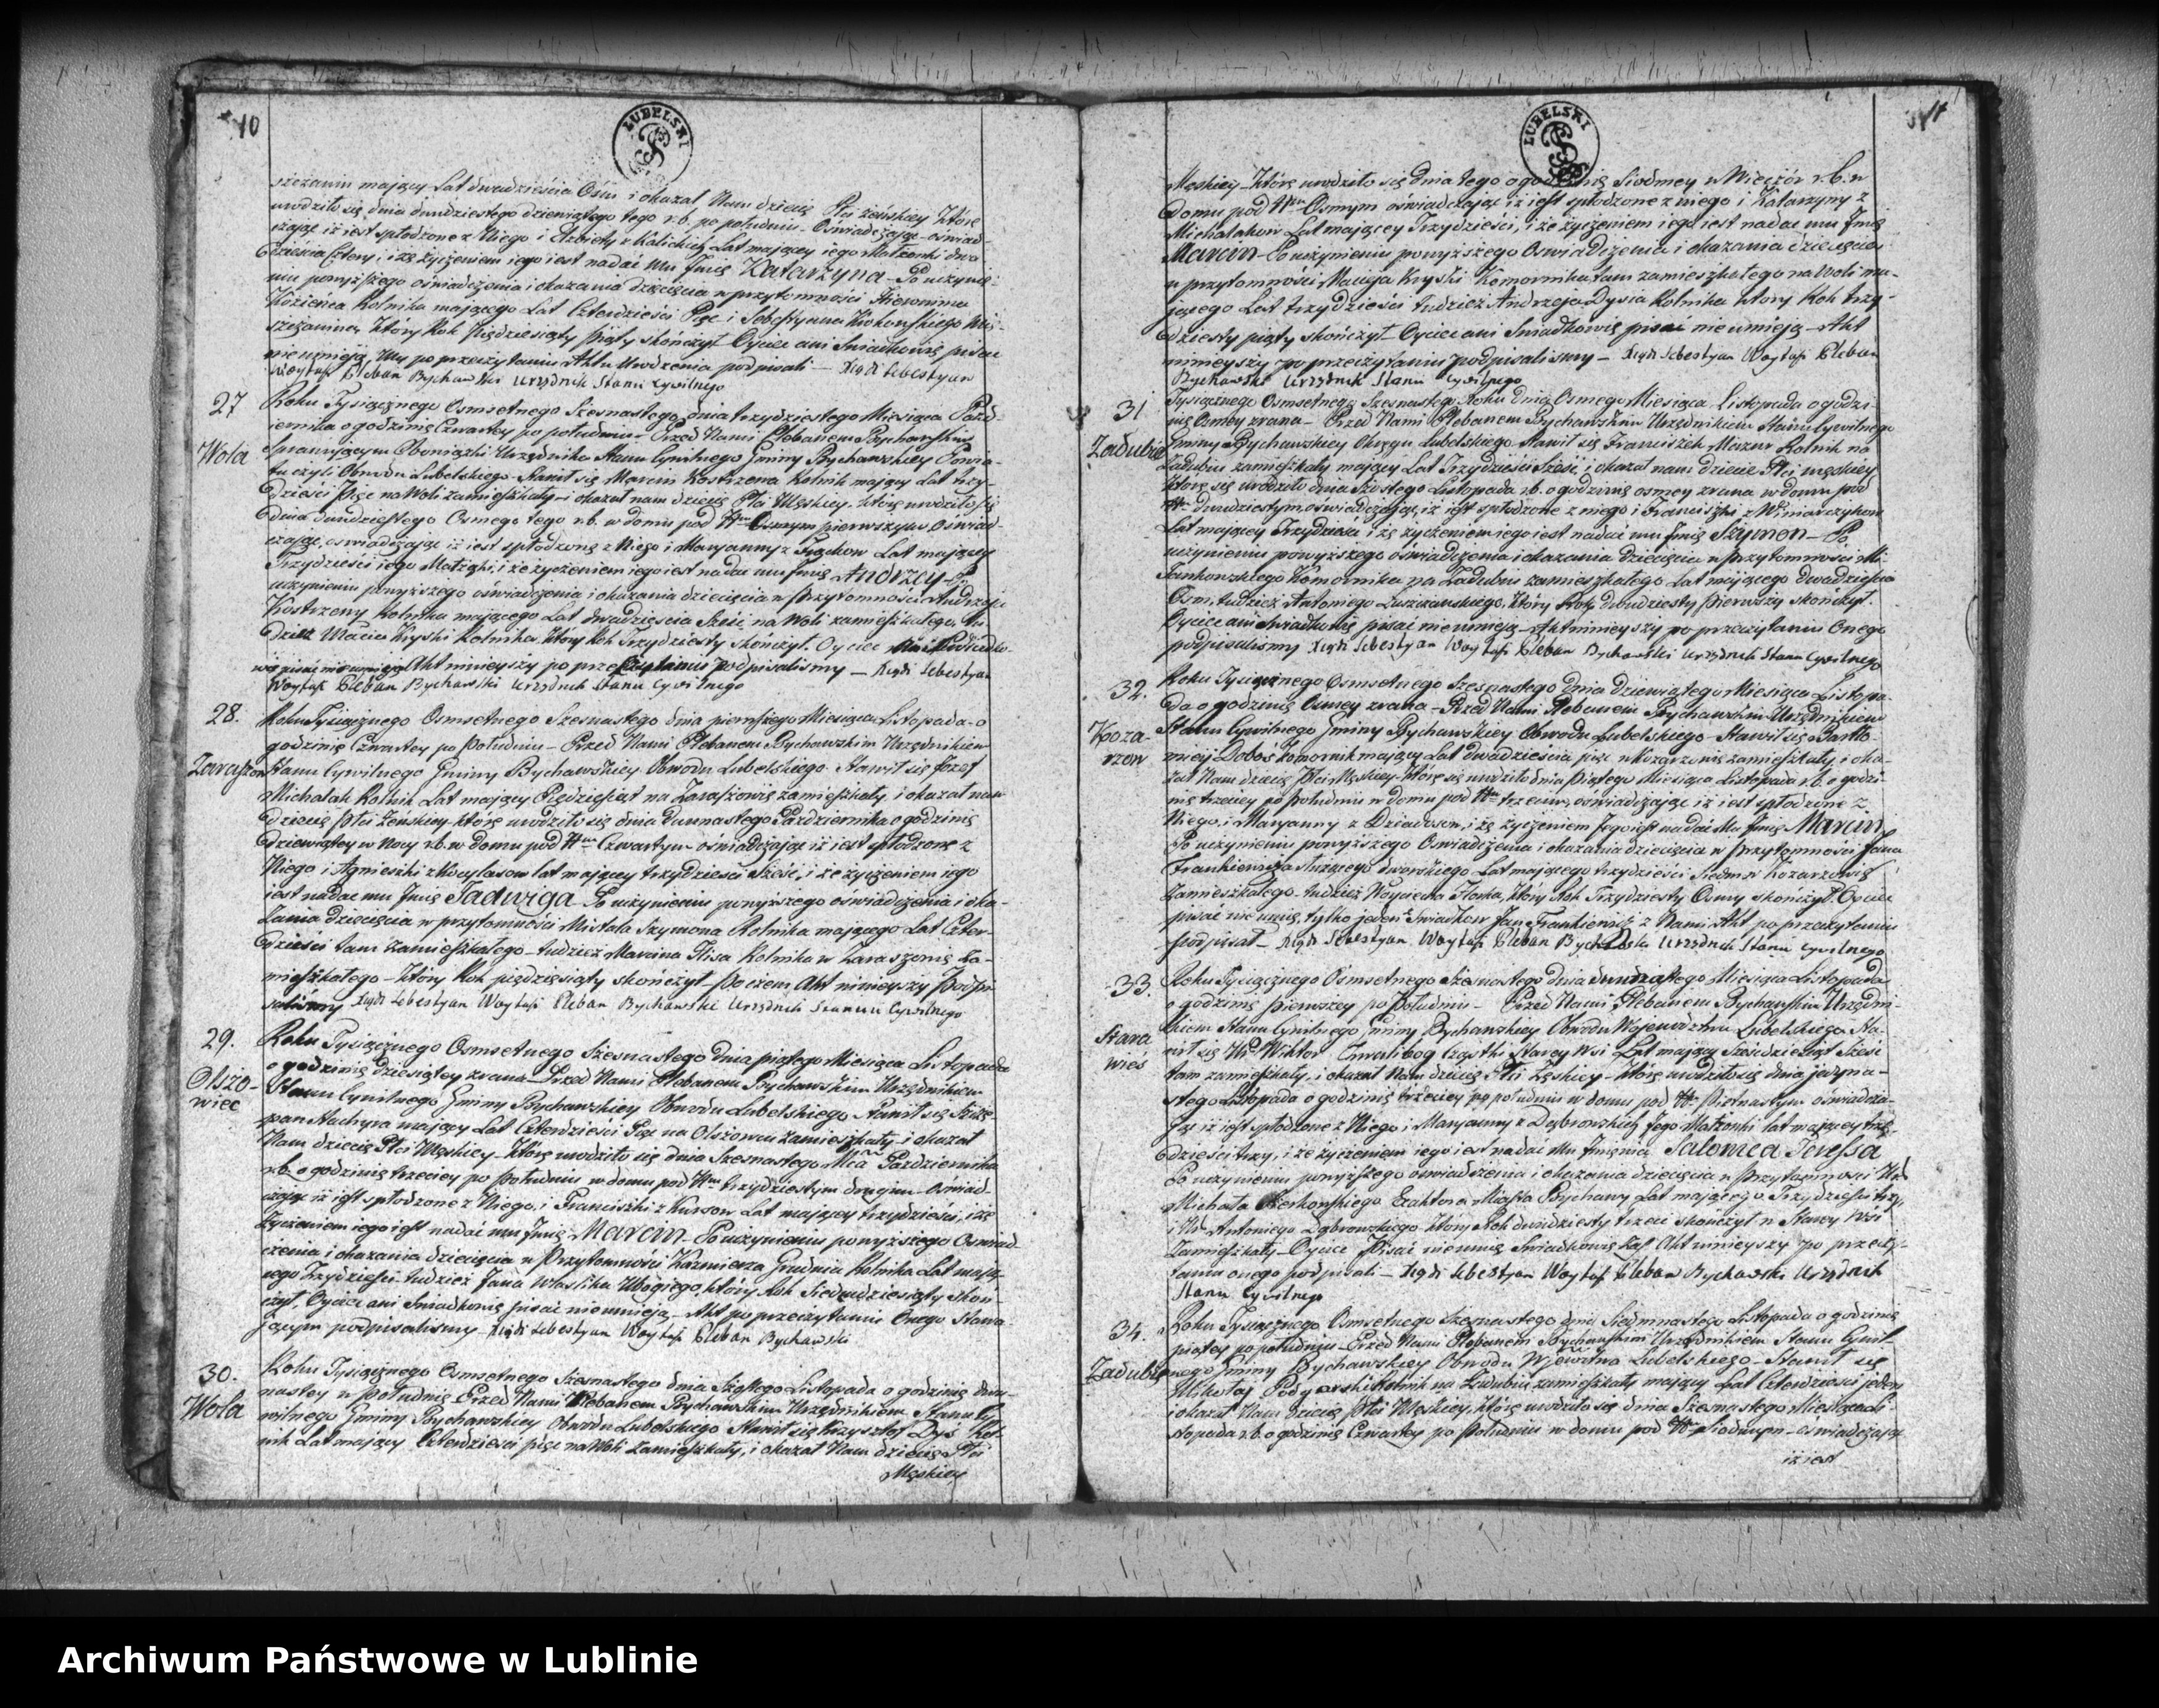 10
LUBELSKI
szczanin mający Lat dwadzieścia Ośm i okazał Nam dziecię Płci żeńskiey Które
urodziło się dnia dwudziestego dziewiątego tego r.b. po południu - Oświadczając oświad-
czając iż iest spłodzone z Niego i Elżbiety z Kalickich Lat mającey iego Małżonki dwa
dzieścia Cztery, i że życzeniem iego iest nadać Mu Jmię Katarzyna - Po uczynie-
niu powyższego oświadczenia i okazania dziecięcia w przytomności Hieronima
Kozieńca Rolnika mającego Lat Czterdzieści Pięć i Sebestyana
szczanina, Który Rok Pięćdziesiąty Piąty skończył Oyciec ani Świadkowie pisać
nie umieją, My po przeczytaniu Aktu Urodzenia podpisali - Xiądz Sebestyan
Woytasz Pleban Bychawski Urzędnik Stanu Cywilnego
27
Wola
Roku Tysiącznego Osmsetnego Szesnastego, dnia trzydziestego Miesiąca Paźd-
iernika o godzinie Czwartey po południu - Przed Nami Plebanem Bychawskim
Sprawującym Obowiązki Urzędnika Stanu Cywilnego Gminy Bychawskiey Powia-
tu czyli Obwodu Lubelskiego - Stawił się Marcin Kostrzewa Rolnik mający Lat trzy-
dzieści Pięć na Woli zamieszkały - i okazał nam dziecię Płci Męskiey, które urodziło się
dnia dwudziestego Osmego tego r.b. w domu pod Nrm Osmym pierwszym, Oświad-
czając, oświadczając iż iest spłodzone z Niego i Maryanny z Lat mającey
Trzydzieści iego Małżonki, i że życzeniem iego iest nadać mu Jmię Andrzey - Po
uczynieniu powyższego oświadczenia i okazania dziecięcia w Przytomności Andrzeja
Kostrzewy Rolnika mającego Lat dwadzieścia Sześć na Woli zamieszkałego, tu-
dzież Macieja Kryski Rolnika Który Rok Trzydziesty skończył. Oyciec ani Świadko-
wie pisać nie umieją Akt ninieyszy po przeczytaniu Podpisaliśmy - Xiądz Sebestyan
Woytasz Pleban Bychawski Urzędnik Stanu Cywilnego
28.
Zaraszów
Roku Tysiącznego Osmsetnego Szesnastego dnia pierwszego Miesiąca Listopada o
godzinie Czwartey po Południu - Przed Nami Plebanem Bychawskim Urzędnikiem
Stanu Cywilnego Gminy Bychawskiey Obwodu Lubelskiego - Stawił się Jozef
Michalak Rolnik Lat mający Pięćdziesiąt na Zaraszowie zamieszkały i okazał nam
dziecię Płci Żeńskiey które urodziło się dnia Października o godzinie
dziewiątey w Nocy r.b. w domu pod Nrm Czwartym oświadczając iż iest spłodzone z
Niego i Agnieszki z lat mającey trzydzieści Sześć, i że życzeniem iego
iest nadać mu Jmię Jadwiga Po uczynieniu powyższego oświadczenia i oka-
zania dziecięcia w przytomności Mistala Szymona Rolnika mającego Lat Czter-
dzieści tam zamieszkałego - tudzież Marcina Rolnika w Zaraszowie Za-
mieszkałego - Który Rok pięćdziesiąty skończył - Po czem Akt ninieyszy Podpi-
saliśmy Xiądz Sebestyan Woytasz Pleban Bychawski Urzędnik Stanu Cywilnego
29.
Olszo-
wiec
Roku Tysiącznego Osmsetnego Szesnastego Dnia piątego Miesiąca Listopada
o godzinie dziesiątey zrana - Przed Nami Plebanem Bychawskim Urzędnikiem
Stanu Cywilnego Gminy Bychawskiey Obwodu Lubelskiego Stawił się Szcze-
pan Stachyra mający Lat Czterdzieści Pięć na Olszowcu Zamieszkały i okazał
Nam dziecię Płci Męskiey - Które urodziło się dnia Szesnastego Mca Października
r.b. o godzinie trzeciey po Południu w domu pod Nrm trzydziestym drugim - Oświad-
czając iż iest spłodzone z Niego, i Franciszki z Kursow Lat mającey trzydzieści, i że
Życzeniem iego iest nadać mu Jmię Marcin - Po uczynieniu powyższego Oświad-
czenia i okazania dziecięcia w Przytomności Kazmierza Grudnia Rolnika Lat mają-
cego Trzydzieści tudzież Jana Ubogiego, który Rok Siedmdziesiąty skoń-
czył, Oyciec ani Świadkowie pisać nie umieją - Akt po przeczytaniu Onego Stawa-
jącym podpisaliśmy - Xiądz Sebestyan Woytasz Pleban Bychawski
30.
Wola
Roku Tysiącznego Osmsetnego Szesnastego dnia Szóstego Listopada o godzinie dwu-
nastey w Południe Przed Nami Plebanem Bychawskim Urzędnikiem Stanu Cy-
wilnego Gminy Bychawskiey Obwodu Lubelskiego Stawił się Krzysztof Dys Rol-
nik Lat mający Czterdzieści pięć na Woli Zamieszkały, i okazał Nam dziecię Płci
Męskiey
11
LUBELSKI
Męskiey - Które urodziło się Dnia tego o godzinie Siódmey w Wieczór r.b. w
Domu pod Nrm Osmym oświadczając iż iest spłodzone z niego i Katarzyny z
Michalakow Lat mającey Trzydzieści, i że życzeniem iego iest nadać mu Jmię
Marcin - Po uczynieniu powyższego Oświadczenia i okazania dziecięcia
w przytomności Macieja Kryski Komornika tam zamieszkałego na Woli ma-
jącego Lat trzydzieści tudzież Andrzeja Dysia Rolnika który Rok trzy-
dziesty piąty skończył - Oyciec ani Świadkowie pisać nie umieją - Akt
ninieyszy po przeczytaniu podpisaliśmy - Xiądz Sebestyan Woytasz Pleban
Bychawski Urzędnik Stanu Cywilnego
31
Zadubie
Tysiącznego Osmsetnego Szesnastego Roku dnia Osmego Miesiąca Listopada o godzi-
nie Osmey zrana - Przed Nami Plebanem Bychawskim Urzędnikiem Stanu Cywilnego
Gminy Bychawskiey Okręgu Lubelskiego Stawił się Franciszek Mazur Rolnik na
Zadubiu zamieszkały mający Lat Trzydzieści Sześć i okazał nam dziecie Płci męskiey
które się urodziło dnia Szóstego Listopada r.b. o godzinie osmey zrana w domu pod
Nrm dwudziestym, oświadczając, iż iest spłodzone z niego i Franciszki z Winiarczykow
Lat mającey Trzydzieści i że życzeniem iego iest nadać mu Jmię Szymon - Po
uczynieniu powyższego oświadczenia i okazania Dziecięcia w Przytomności Mi-
Jankowskiego Komornika na Zadubiu zamieszkałego Lat mającego dwadzieścia
Osm, tudzież Antoniego który Rok dwudziesty Pierwszy skończył.
Oyciec ani Świadkowie pisać nie umieją - Akt ninieyszy po przeczytaniu Onego
podpisaliśmy Xiądz Sebestyan Woytasz Pleban Bychawski Urzędnik Stanu Cywilnego
32.
Koza-
rzow
Roku Tysiącznego Osmsetnego Szesnastego Dnia Dziewiątego Miesiąca Listopa-
da o godzinie Osmey zrana - Przed Nami Plebanem Bychawskim Urzędnikiem
Stanu Cywilnego Gminy Bychawskiey Obwodu Lubelskiego - Stawił się Bartło-
miey Doboś Komornik mający Lat dwadzieścia pięć w Kozarzowie zamieszkały, i oka-
zał Nam dziecię Płci Męskiey - które się urodziło dnia Piątego Miesiąca Listopada r.b. o godzi-
nie trzeciey po Południu w domu pod Nrm trzecim, oświadczając iż iest spłodzone z
Niego, i Maryanny z Dziadosow, i że życzeniem Jego iest nadać Mu Jmię Marcin
Po uczynieniu powyższego Oświadczenia i okazania dziecięcia w Przytomności Jana
Frankiewicza służącego dworskiego Lat mającego trzydzieści Siedm w Kozarzowie
Zamieszkałego tudzież Woyciecha Który Rok Trzydziesty Osmy skończył. Oyciec
pisać nie umie, tylko jeden Świadkow Jan Frankiewicz z Nami Akt po przeczytaniu
Podpisał - Xiądz Sebestyan Woytasz Pleban Bychawski Urzędnik Stanu Cywilnego
33.
Stara
wieś
Roku Tysiącznego Osmsetnego Szesnastego dnia dwunastego Miesiąca Listopada
o godzinie Pierwszey po Południu - Przed Nami Plebanem Bychawskim Urzędni-
kiem Stanu Cywilnego Gminy Bychawskiey Obwodu Województwa Lubelskiego Sta-
wił się Wiktor Cząstki Starey Wsi Lat mający Sześćdziesiąt Sześć
tam zamieszkały, i okazał Nam dziecię Płci Żęskiey - Które urodziło się dnia jedyna-
stego Listopada o godzinie trzeciey po południu w domu pod Nrm Piętnastym oświadcza-
jąc iż iest spłodzone z Niego i Maryanny z Dąbrowskich Jego Małżonki lat mającey trzy-
dzieści trzy, i że życzeniem iego iest nadać Mu Jmiona Salomea Teressa
Po uczynieniu powyższego oświadczenia i okazania dziecięcia w Przytomności
Michała Exaktora Miasta Bychawy Lat mającego Trzydzieści trzy,
i Antoniego Dąbrowskiego który Rok dwudziesty trzeci skończył w Starey Wsi
Zamieszkały - Oyciec Pisać nie umie Świadkowie zaś Akt ninieyszy po przeczy-
taniu onego podpisali - Xiądz Sebestyan Woytasz Pleban Bychawski Urzędnik
Stanu Cywilnego
34.
Zadubie
Roku Tysiącznego Osmsetnego Szesnastego dnia Siedmnastego Listopada o godzinie
piątey po południu - Przed Nami Plebanem Bychawskim Urzędnikiem Stanu Cywil-
nego Gminy Bychawskiey Obwodu Lubelskiego - Stawił się
Mikołay Rolnik na Zadubiu zamieszkały mający Lat Czterdzieści jeden
i okazał Nam dziecię Płci Męskiey, które urodziło się dnia Szesnastego Miesiąca Li-
stopada r.b. o godzinie Czwartey po Południu w domu pod Nrm Siódmym - oświadczając
iż iest
Archiwum Państwowe w Lublinie